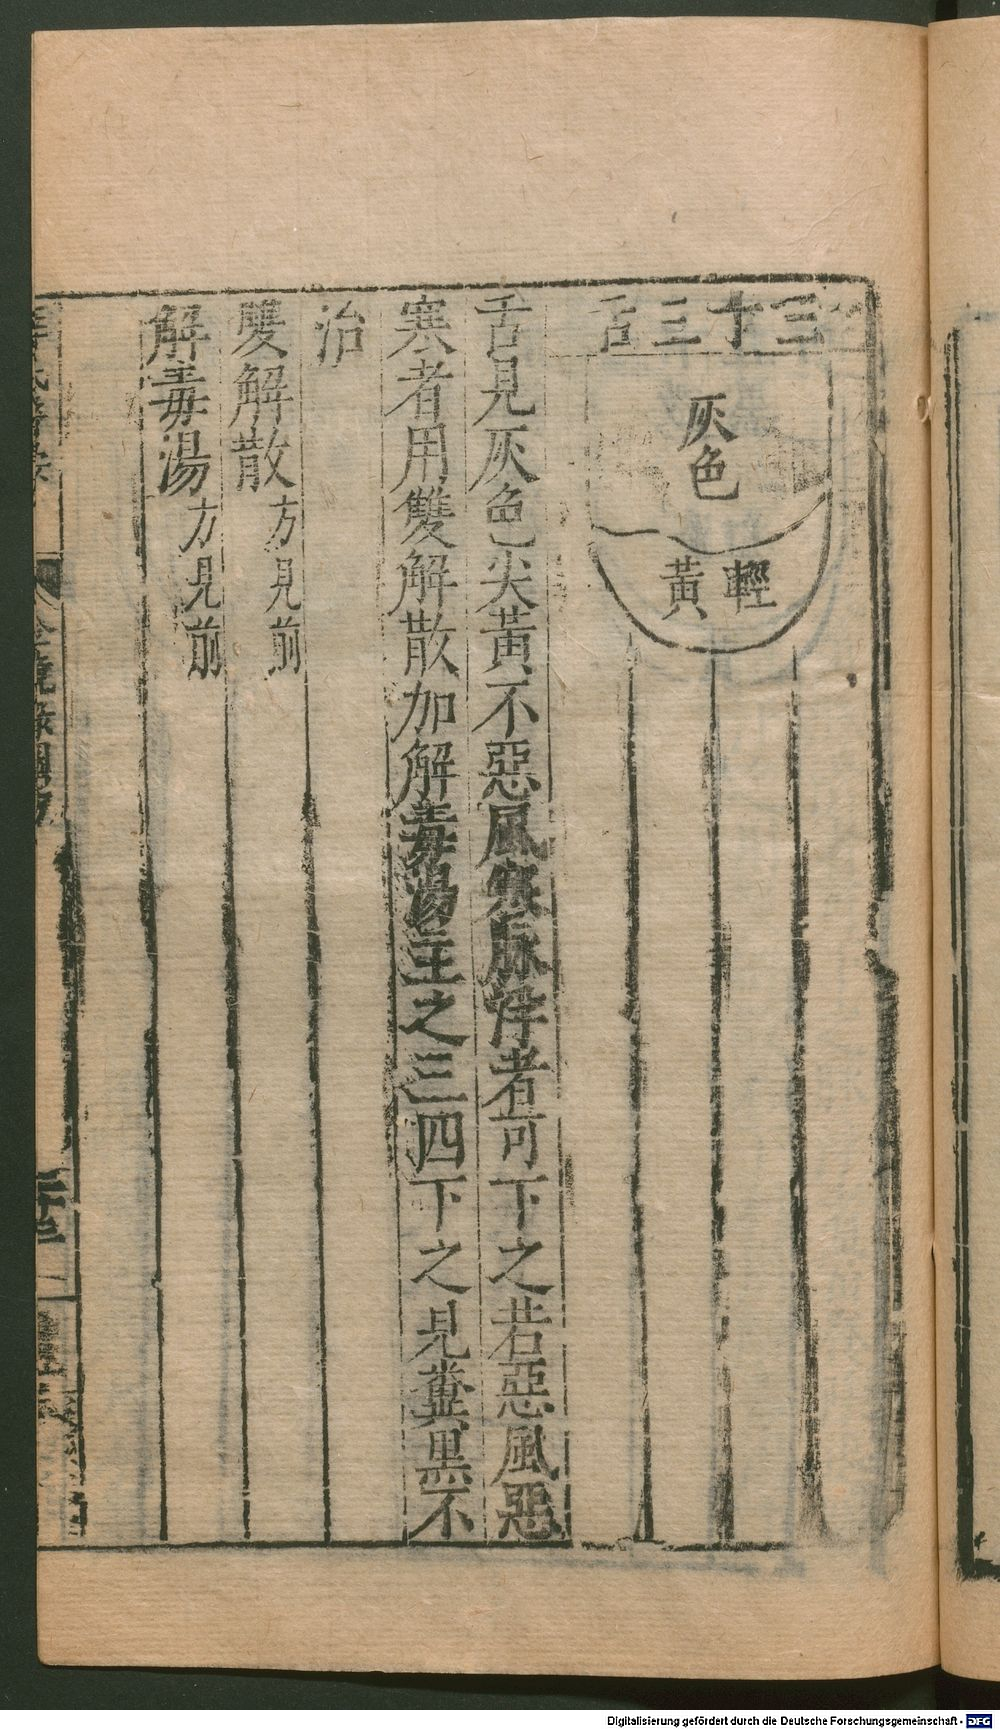 三十三舌
灰色
輕黃
舌見灰色尖黃不惡風寒脉浮者可下之若惡風惡
寒者用雙解散加解毒湯主之三四下之見糞黑不
治
雙解散方見前
解毒湯方見前
Digitalisierung gefördert durch die Deutsche Forschungsgemeinschaft - DFG